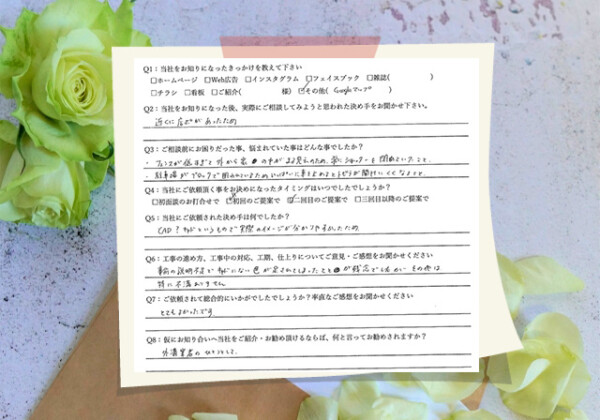 Q1：当社をお知りになったきっかけを教えて下さい
□ホームページ □Web広告 □インスタグラム □フェイスブック □雑誌( )
□チラシ □看板 □ご紹介( 様) ☑その他( Googleマップ )
Q2：当社をお知りになった後、実際にご相談してみようと思われた決め手をお聞かせ下さい。
近くに店があったため
Q3：ご相談前にお困りだった事、悩まれていた事はどんな事でしたか？
・フェンスが低すぎと外から家の中がまる見えのため、常にシャッターを閉めていたこと。
・駐車場がブロックで囲われているためいっぱいに車をとめると
Q4：当社にご依頼頂く事をお決めになったタイミングはいつでしたでしょうか？
□初面談のお打合せで ☑初回のご提案で ☑二回目のご提案で □三回目以降のご提案で
Q5：当社にご依頼された決め手は何でしたか？
CAD？かというもので実際のイメージが分かりやすかったため
Q6：工事の進め方、工事中の対応、工期、仕上りについてご意見・ご感想をお聞かせください
事前の説明不足で 色が されてしまったことが残念でしたが、その他は
特に不満ありません
Q7：ご依頼されて総合的にいかがでしたでしょうか？率直なご感想をお聞かせください
とてもよかったです
Q8：仮にお知り合いへ当社をご紹介・お勧め頂けるならば、何と言ってお勧めされますか？
外溝業者のひとつとして。